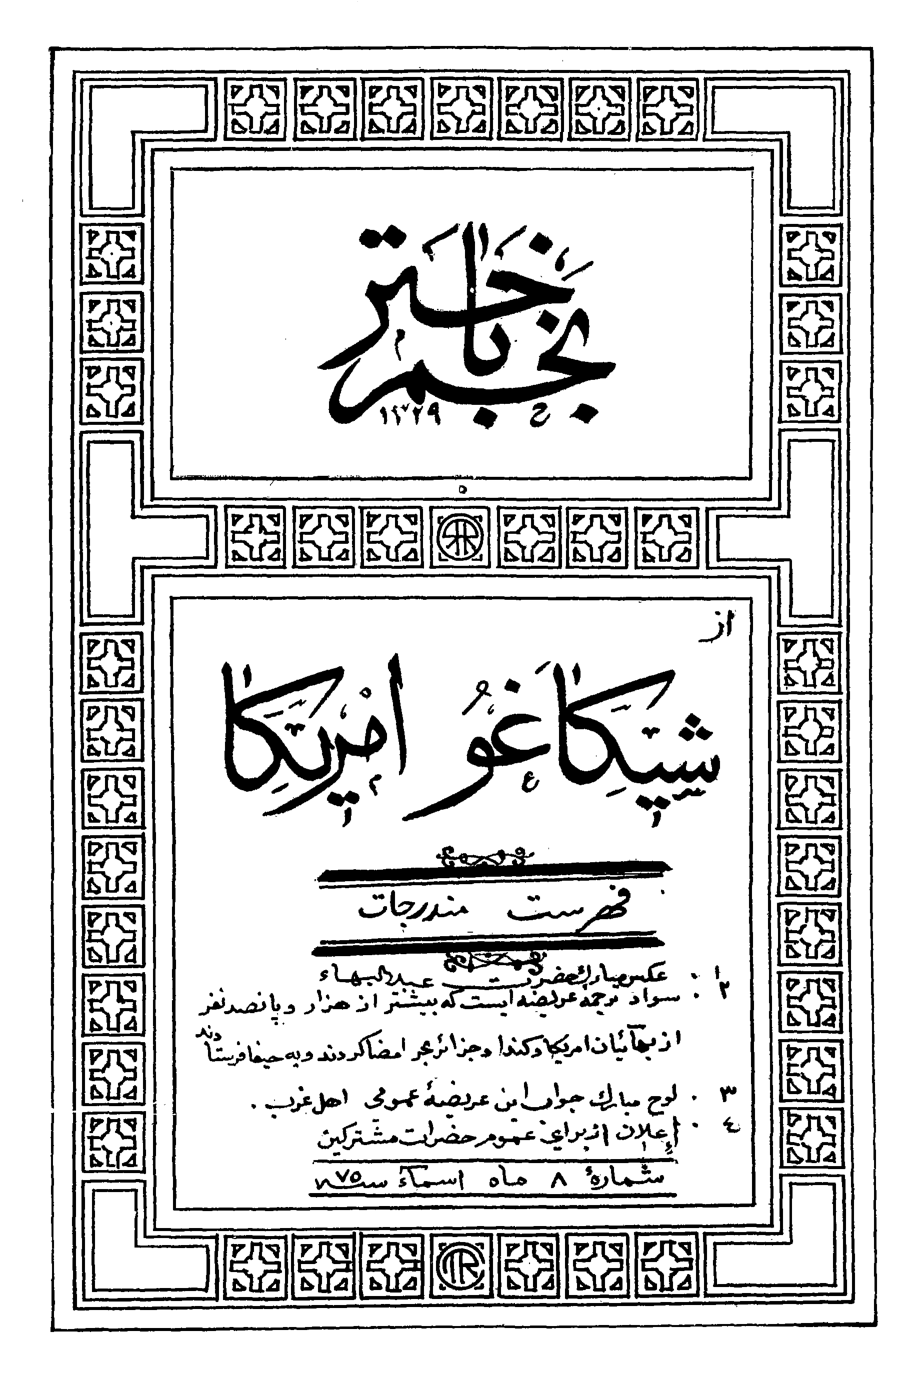 نجم باختر
۱۳۲۹
از
شیکاغو امریکا
فهرست مندرجات
۱ . عکس مبارک حضرت عبدالبهاء
۲ . سواد ترجمهٔ عریضه ایست که بیشتر از هزار و پانصد نفر
از بهائیان امریکا و کندا و جزائر بحر امضا کردند و به حیفا فرستادند
۳ . لوح مبارک جواب این عریضهٔ عمومی اهل غرب .
٤ . إعلان از برای عموم حضرات مشترکین
شمارهٔ ۸ ماه اسماء سنه ۷۵